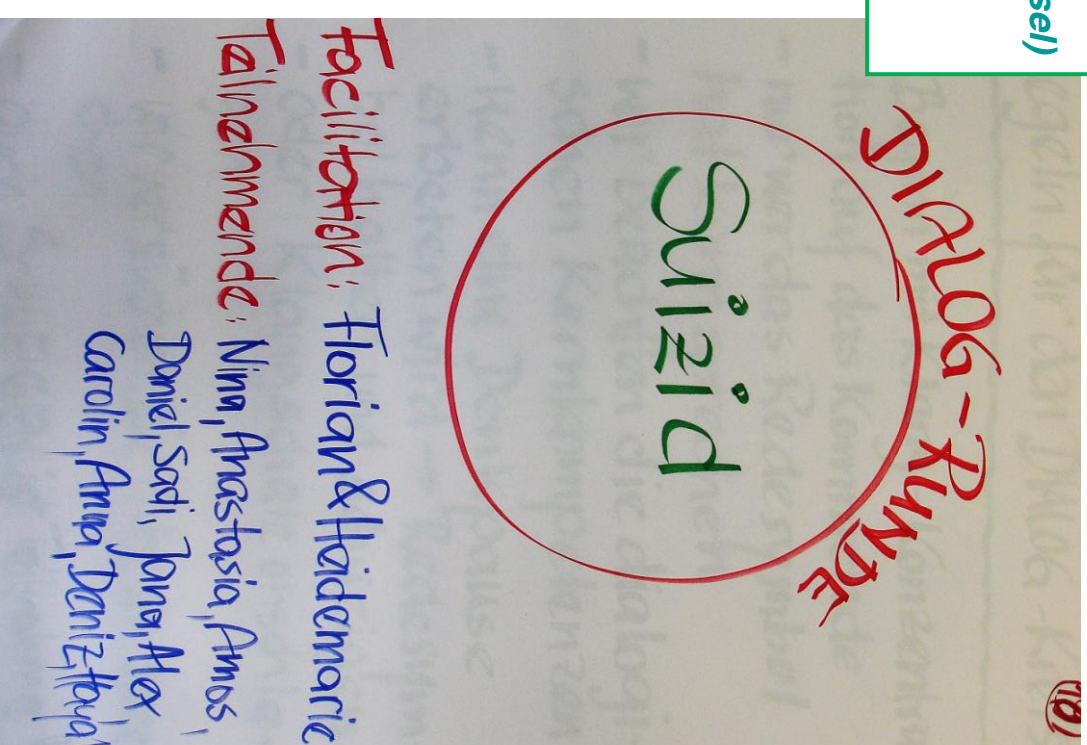 sel)
18)
DIALOG-RUNDE
Suizid
Facilitation: Florian & Heidemarie
Teilnehmende: Nina, Anastasia, Amos,
Daniel, Sadi, Jana, Alex,
Carolin, Anna, Deniz, Haya